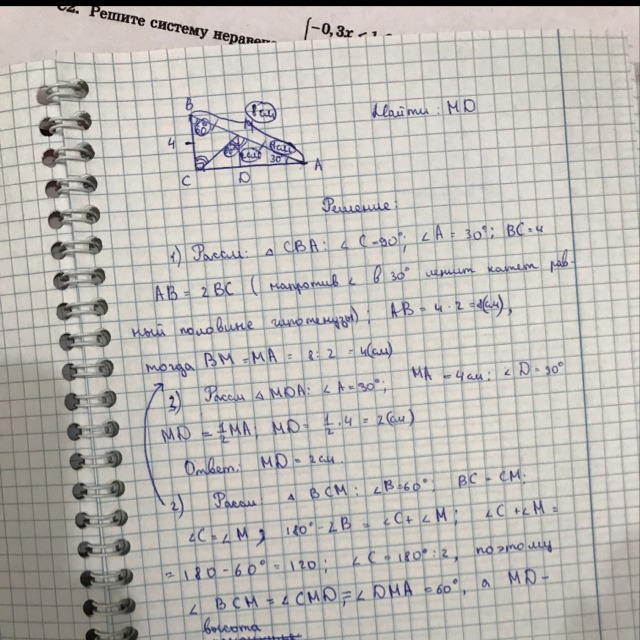 С2. Решите систему неравен
{-0,3x < 1
B
60°
8 см
M
4
4 см
30°
C
D
A
Найти: MD
Решение:
1) Рассм: △ CBA: ∠ C = 90°; ∠ A = 30°; BC = 4
AB = 2BC ( напротив < в 30° лежит катет рав-
ный половине гипотенузы); AB = 4 · 2 = 8(см),
тогда BM = MA = 8 : 2 = 4(см)
3) Рассм △ MDA: ∠A = 30°; MA = 4см; ∠ D = 90°
MD = 1/2 MA; MD = 1/2 · 4 = 2(см)
Ответ: MD = 2см.
2) Рассм: △ BCM: ∠B = 60°; BC = CM.
∠C = ∠ M; 180° - ∠ B = ∠C + ∠ M; ∠C + ∠M =
= 180 - 60° = 120; ∠ C = 180° : 2, поэтому
∠ BCM = ∠ CMD; = ∠ DMA = 60°, а MD -
высота